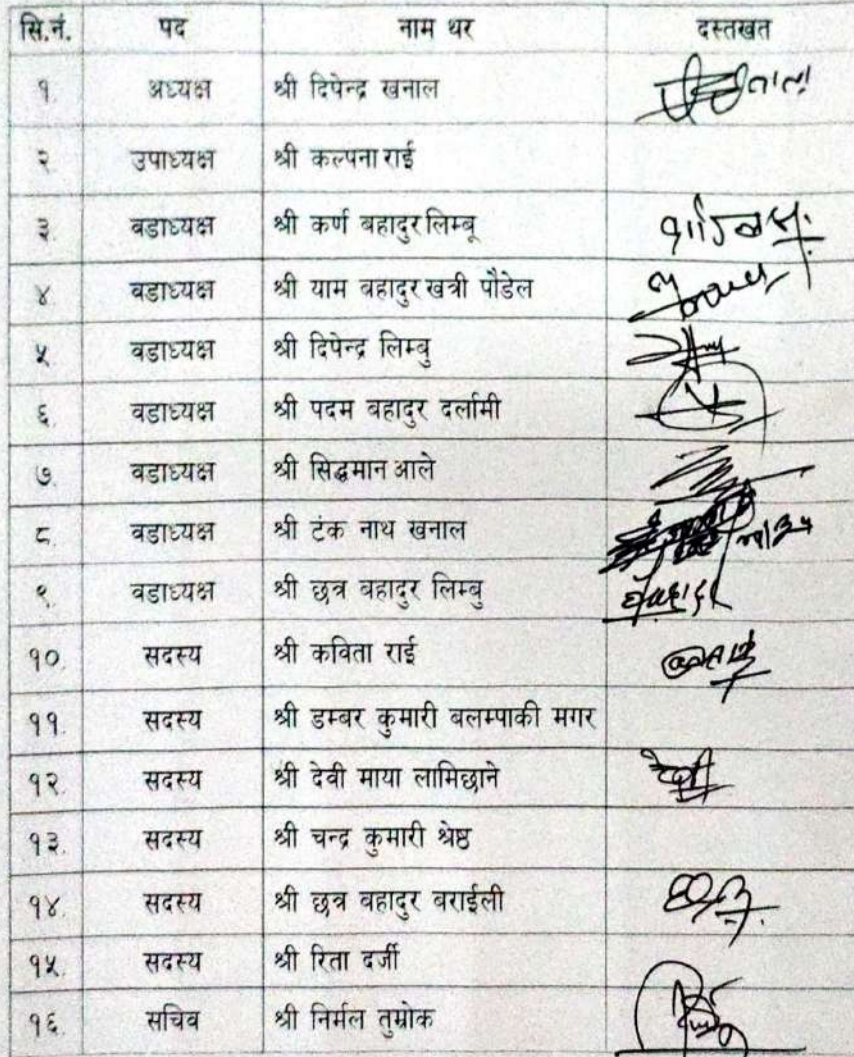 सि.नं. पद नाम थर दस्तखत
१ अध्यक्ष श्री दिपेन्द्र खनाल
२ उपाध्यक्ष श्री कल्पना राई
३ वडाध्यक्ष श्री कर्ण बहादुर लिम्बू
४ वडाध्यक्ष श्री याम बहादुर खत्री पौडेल
५ वडाध्यक्ष श्री दिपेन्द्र लिम्बु
६ वडाध्यक्ष श्री पदम बहादुर दर्लामी
७ वडाध्यक्ष श्री सिद्धमान आले
८ वडाध्यक्ष श्री टंक नाथ खनाल
९ वडाध्यक्ष श्री छत्र बहादुर लिम्बु
१०. सदस्य श्री कविता राई
११. सदस्य श्री डम्बर कुमारी बलम्पाकी मगर
१२. सदस्य श्री देवी माया लामिछाने
१३. सदस्य श्री चन्द्र कुमारी श्रेष्ठ
१४. सदस्य श्री छत्र बहादुर बराईली
१५. सदस्य श्री रिता दर्जी
१६. सचिव श्री निर्मल तुम्रोक